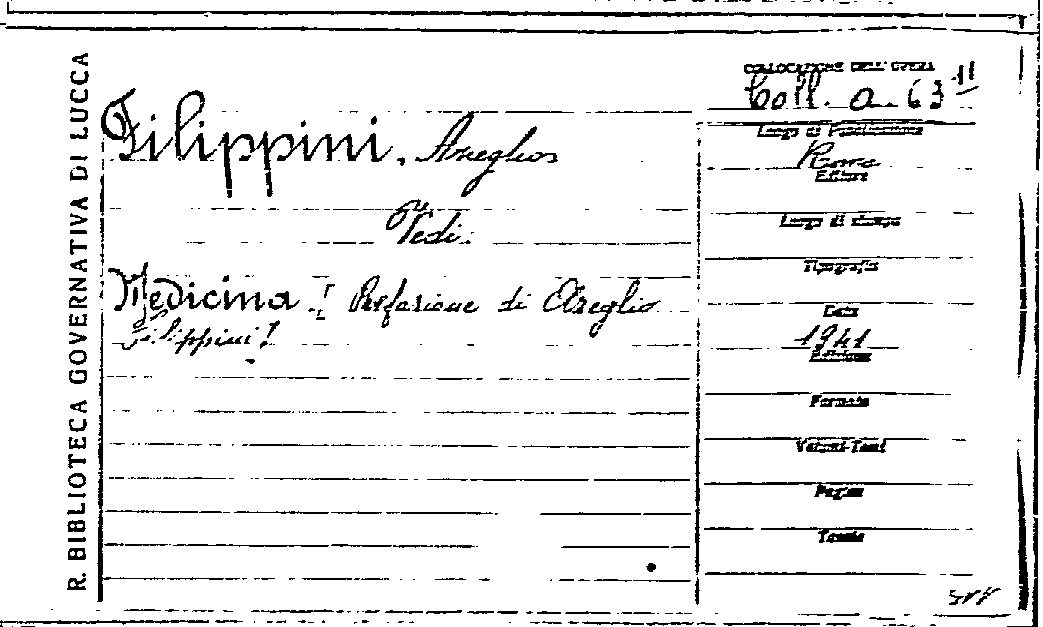 R. BIBLIOTECA GOVERNATIVA DI LUCCA
COLLOCAZIONE DELL'OPERA
Coll. a. 63 11
Filippini, Azeglio
Vedi:
Medicina! Prefazione di Azeglio
Filippini!
Luogo di Pubblicazione
Roma
Editore
Luogo di stampa
Tipografia
Data
1941
Edizione
Formato
Volumi-Tomi
Pagine
Tavole